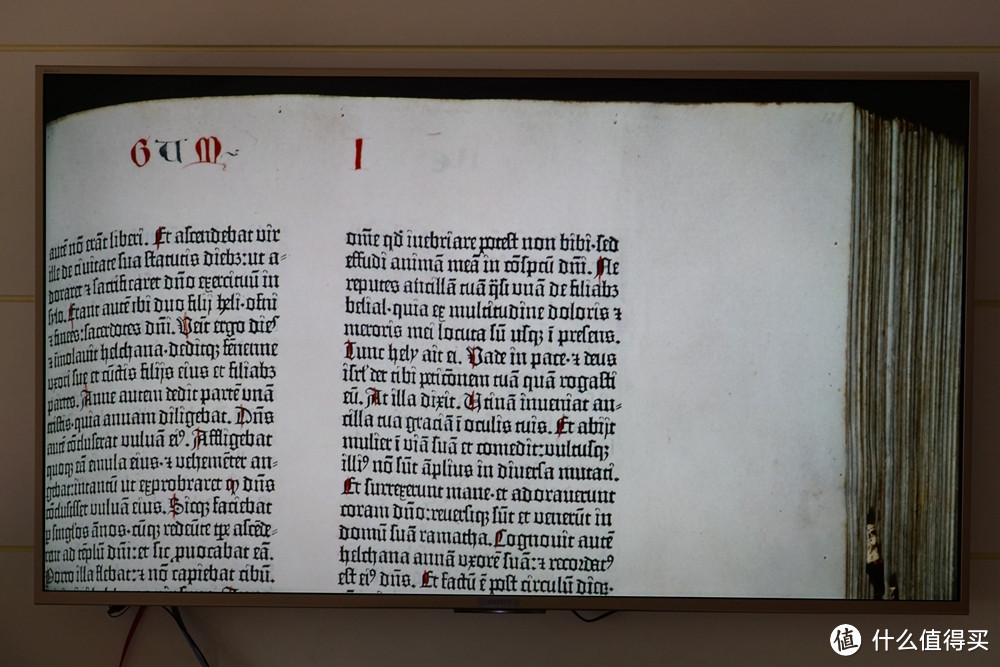 GUM I
autē nō erāt liberi. Et ascendebat vir
ille de civitate sua statutis diebz: ut a-
doraret ⁊ sacrificaret dn̄o exercituū in
sylo. Erant autē ibi duo filij heli·ofni
⁊ finees: sacerdotes dn̄i. Veīt ergo dies
⁊ īmolavit helchana·deditqz fēnenne
uxori sue et cūctis filijs eius et filiabz
partes. Anne autem dedit partē vnā
tristis·quia annam diligebat. Dn̄s
autē cōcluserat vuluā eiꝰ. Affligebat
quoqz eā emula eius·⁊ vehemēter an-
gebat: intantū ut exprobraret ꝙ dn̄s
cōclusisset vuluā eius. Sicqz faciebat
ꝑ singlos ānos·cūqz redeūte tꝑe ascēde-
rent ad tēplū dn̄i: et sic ꝓuocabat eā.
Porro illa flebat: ⁊ nō capiebat cibū.
om̄e qd̄ inebriare potest non bibi·sed
effudi animā meā in cōspctū dn̄i. Ne
reputes ancillā tuā q̄si vnā de filiabz
belial·quia ex multitudine doloris ⁊
meroris mei locuta sū usqz ī presens.
Tunc hely ait ei. Vade in pace·⁊ deus
isrl̄ det tibi peticōnem tuā quā rogasti
eū. At illa dixit. Utinā inveniat an-
cilla tua graciā ī oculis tuis. Et abijt
mulier ī viā suā et comedit: vultusqz
illiꝰ nō sūt āplius in diversa mutati.
Et surrexerunt mane·et adoraverunt
coram dn̄o: reversiqz sūt et venerūt in
domū suā ramatha. Cognovit autē
helchana annā vxorē suā: ⁊ recordatꝰ
est eiꝰ dn̄s. Et factū ē post circulū dieꝝ·
值 什么值得买